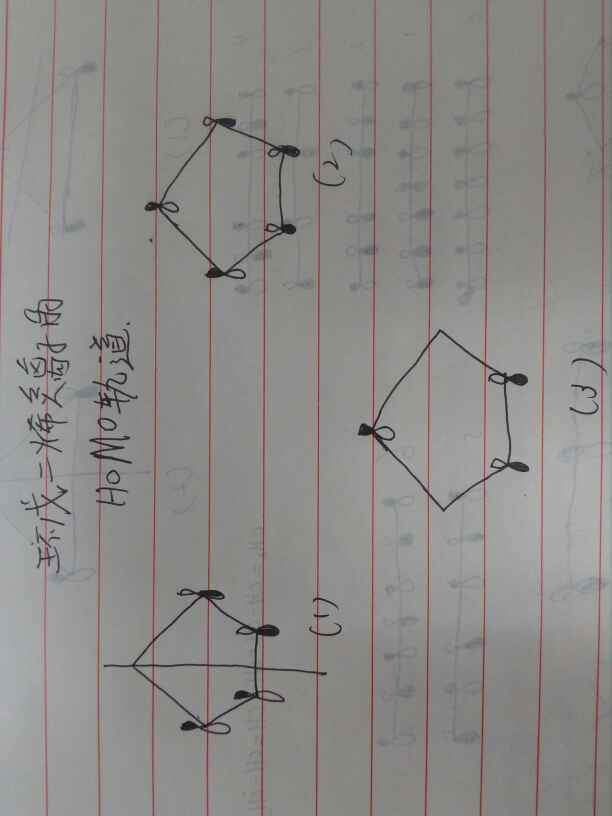 环戊二烯负离子的
HOMO轨道.
(1)
(2)
(3)